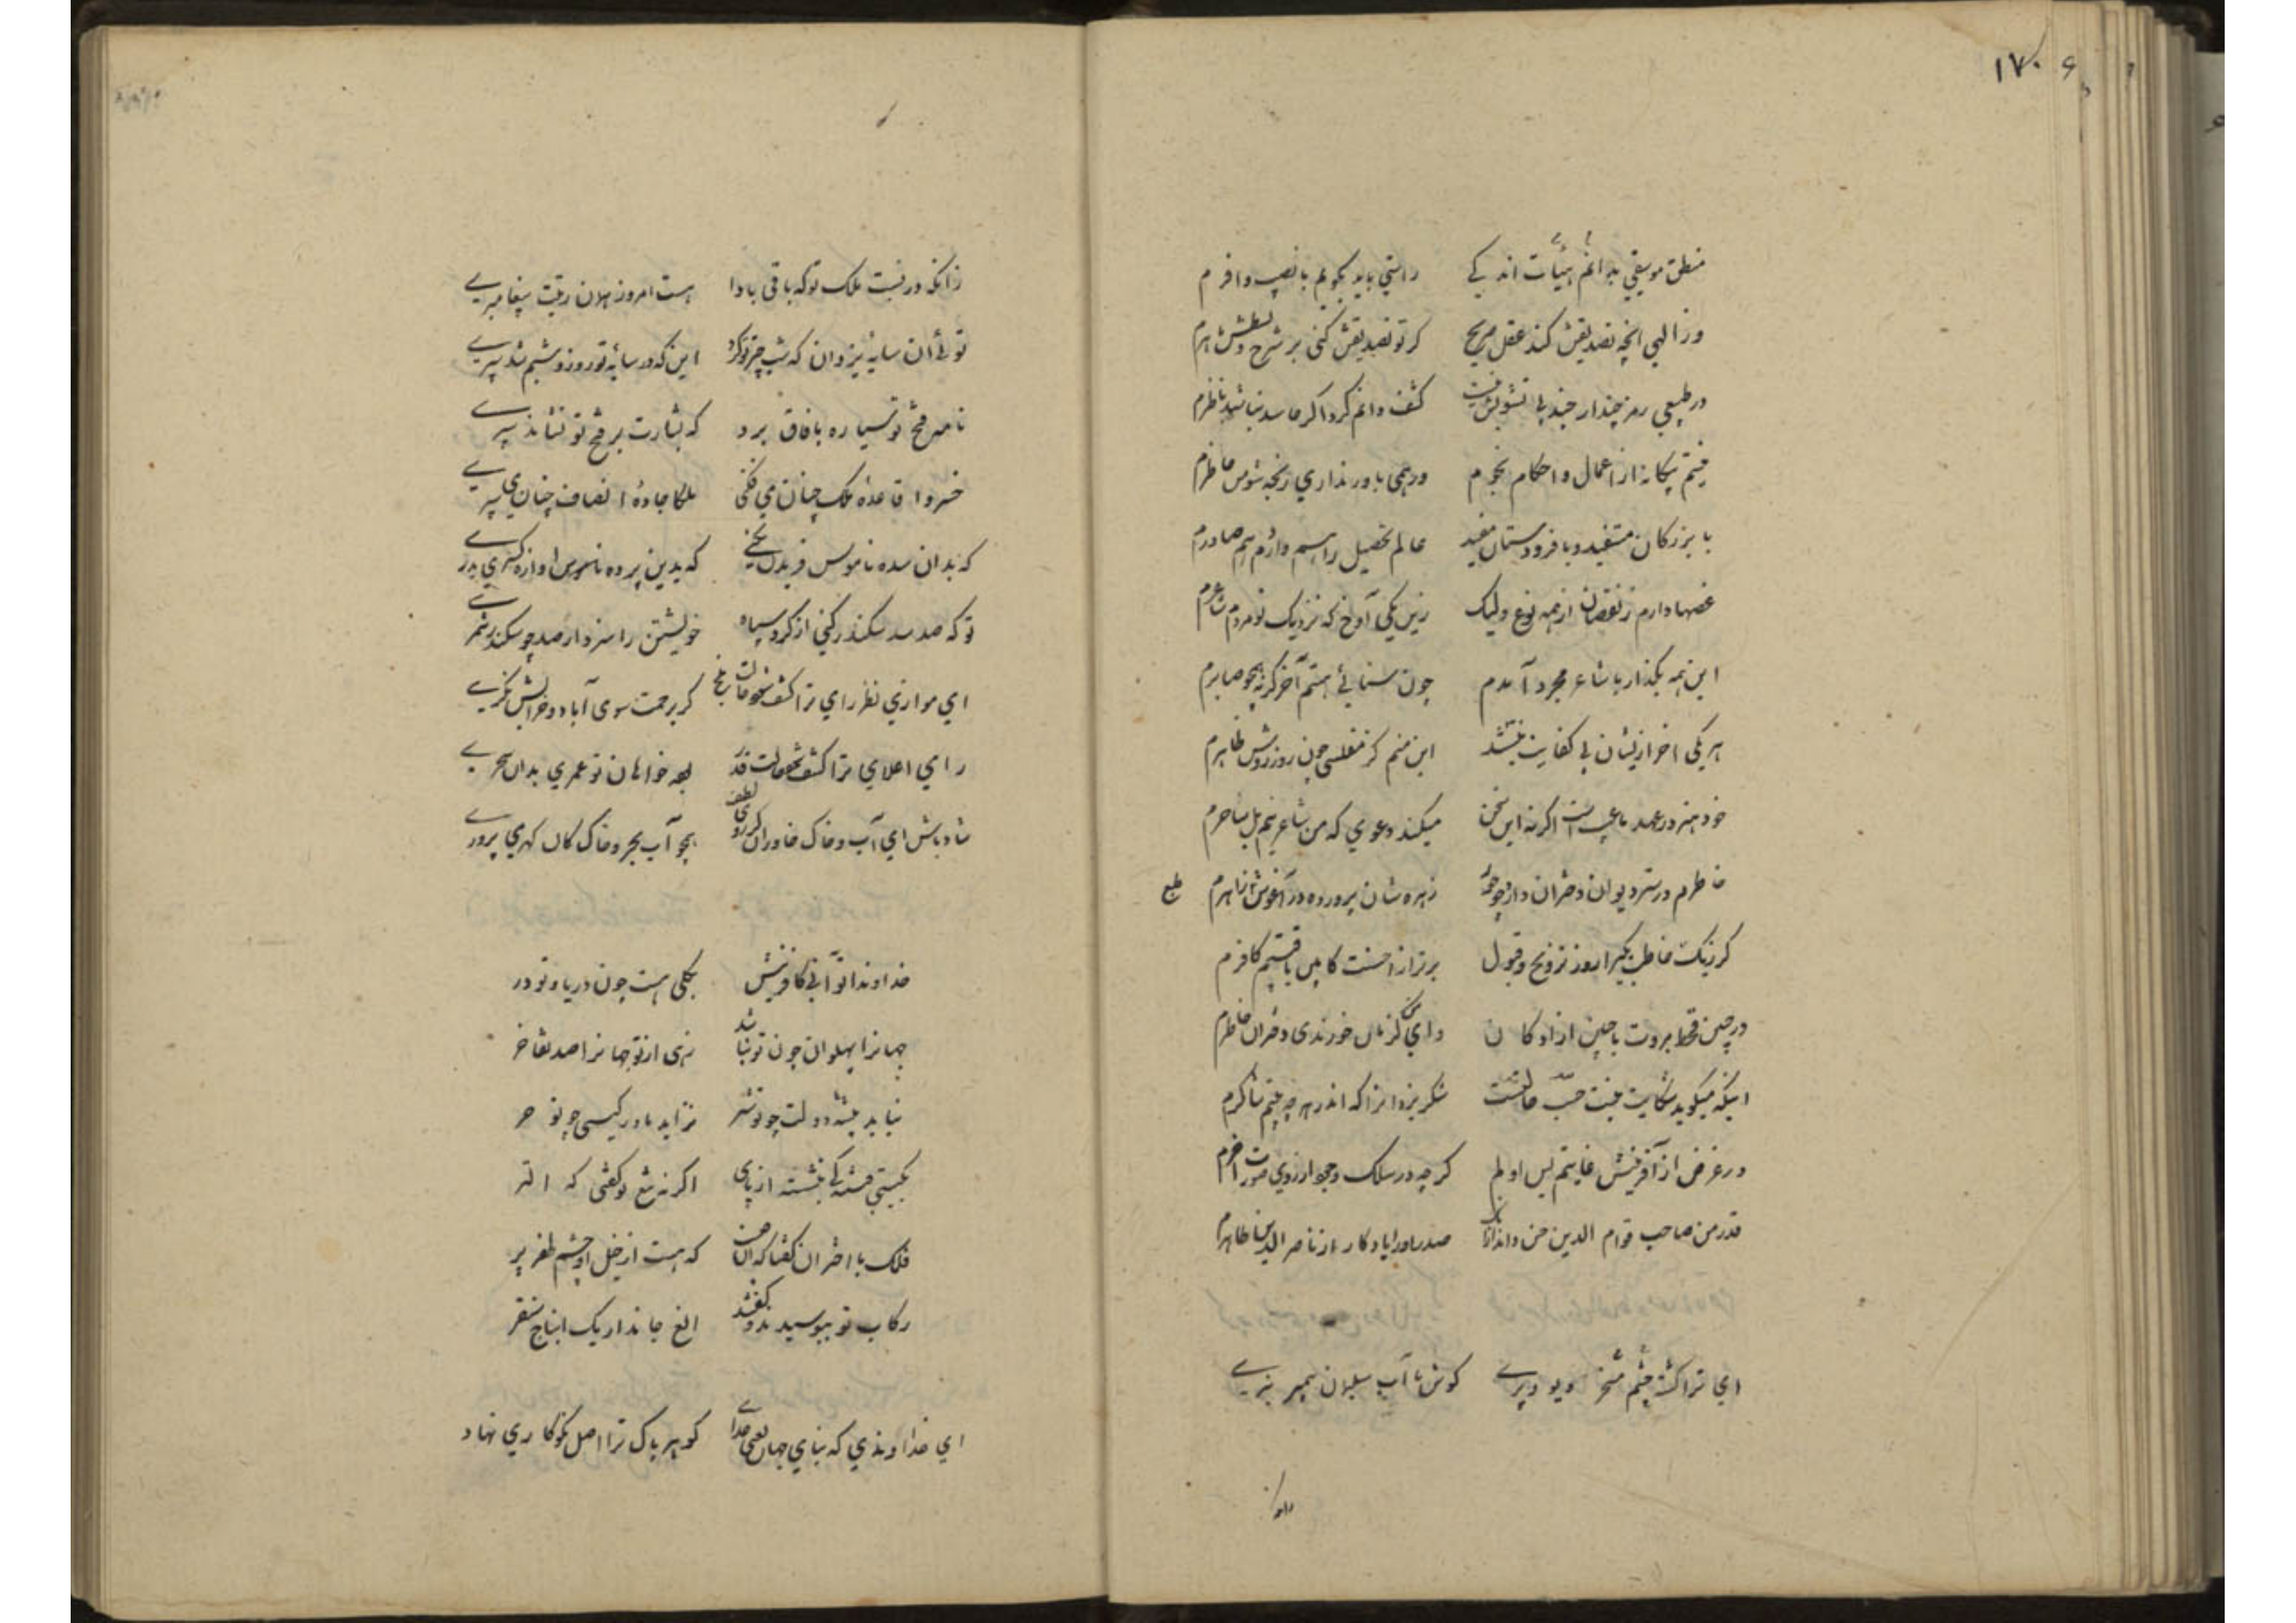 ۱۷۰
منطق موسیقی بدانم هیئات اندکی راستی باید بگویم با نصیب وافرم
وز الهی انچه تصدیقش کند عقل صریح گر تو تصدیقش کنی بر شرح و بسطش ماهرم
در طبیعی رمز چند ار چند بی تشویش نیست کشف دانم کرد اگر حاسد نباشد ناظرم
نیستم بیگانه از اعمال و احکام نجوم ور همی باور نداری رنجه شو من حاضرم
با بزرگان مستفید و با فرودستان مفید عالم تحصیل را هم واردم هم صادرم
غصها دارم ز نقصان از همه نوع ولیک زین یکی آوخ که نزدیک تو مردم شاعرم
این همه بگذار با شاعر مجرد آمدم چون سنائی هستم آخر گر نه همچو صابرم
هر یکی اخر ازیشان بی کفایت نیستند این منم کز مفلسی چون روز روشن ظاهرم
خود هنر در عهد ما عیبست اگر نه این سخن میکند دعوی که من شاعر نیم بل ساحرم
خاطرم در ستر دیوان دختران دارد چو حور زهره شان پرورده در آغوش طبع زاهرم
طبع
گر زیکت خاطب بکر ا روز تزویج و قبول برتر از احسنت کابین یافتستم کافرم
در چنین قحط مروت با چنین ازادکان وای من گر نان خورندی دختران خاطرم
اینکه میگوید شکایت نیست حسب حالتست شکر یزدانرا که اندر هر چه هستم شاکرم
در غرض از آفرینش غایتم لیس اولم گرچه در سلک وجود از روی صورت آخرم
قدر من صاحب قوام الدین حسن داند از انک صدر او را یادگار از ناصر الدین طاهرم
ای ترا گشته چشم مسخر دیو و پری کوش تا آب سلیمان پیمبر ببری
زانکه در نسبت ملک تو که باقی بادا هست امروز همان رتبت پیغامبری
توئی ان سایهٔ یزدان که شب چتر تو کرد این که در سایهٔ تو روز و شبم شد سپری
نامه فتح تو سیاره بافاق برد که بشارت بر فتح تو نشاند سپری
خسروا قاعدهٔ ملک چنان می فکنی ملکا جادهٔ انصاف چنان می سپری
که بدان سده ناموس فریدون بکنی که بدین پرده ناموس اوازه کسری بدری
تو که صد سد سکندر کنی از گرد سپاه خویشتن را سزد ار صد چو سکندر شمری
ای موازی نظر رای ترا کشف گر برحمت سوی آباد و خرابش نگری
رای اعلای ترا کشف شود حالت بلخ به خواهان تو عمری بد ان
شاد باش ای آب و خاک خاوران همچو آب بحر و خاک کان گهر می پروری
خداوندا توآنی کافرینش بکلی هست چون دریا و تو در
جهانرا پهلوان چون تو نباشد زهی از تو جهانرا صد تفاخر
نیابد بیشه دولت چو تو شیر نزاید مادر گیتی چو تو حر
بگیتی فتنه کی بنشستی از پای اگر نه تیغ تو گفتی که التر
فلک با اختران گفتا که آن کیست که هست از خیل او چشم ظفر پر
رکاب تو ببوسیدند و گفتند الغ جاندار بک ایناج سنقر
ای خداوندی که بنای جهان یعنی خدای گوهر پاک ترا اصل نکوکاری نهاد